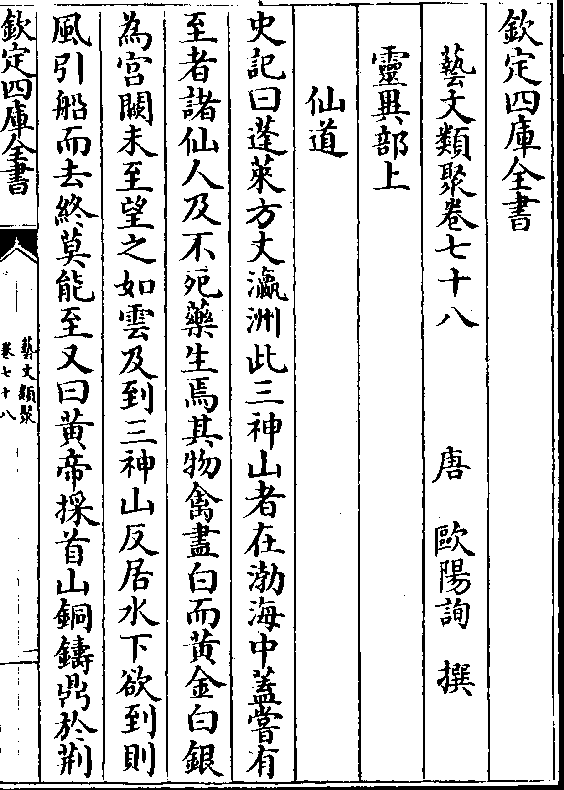 欽定四庫全書
藝文類聚卷七十八　唐　歐陽詢　撰
靈異部上
仙道
史記曰蓬萊方丈瀛洲此三神山者在渤海中蓋嘗有
至者諸仙人及不死藥生焉其物禽盡白而黃金白銀
為宮闕未至望之如雲及到三神山反居水下欲到則
風引船而去終莫能至又曰黃帝採首山銅鑄鼎於荆
欽定四庫全書
藝文類聚
卷七十八